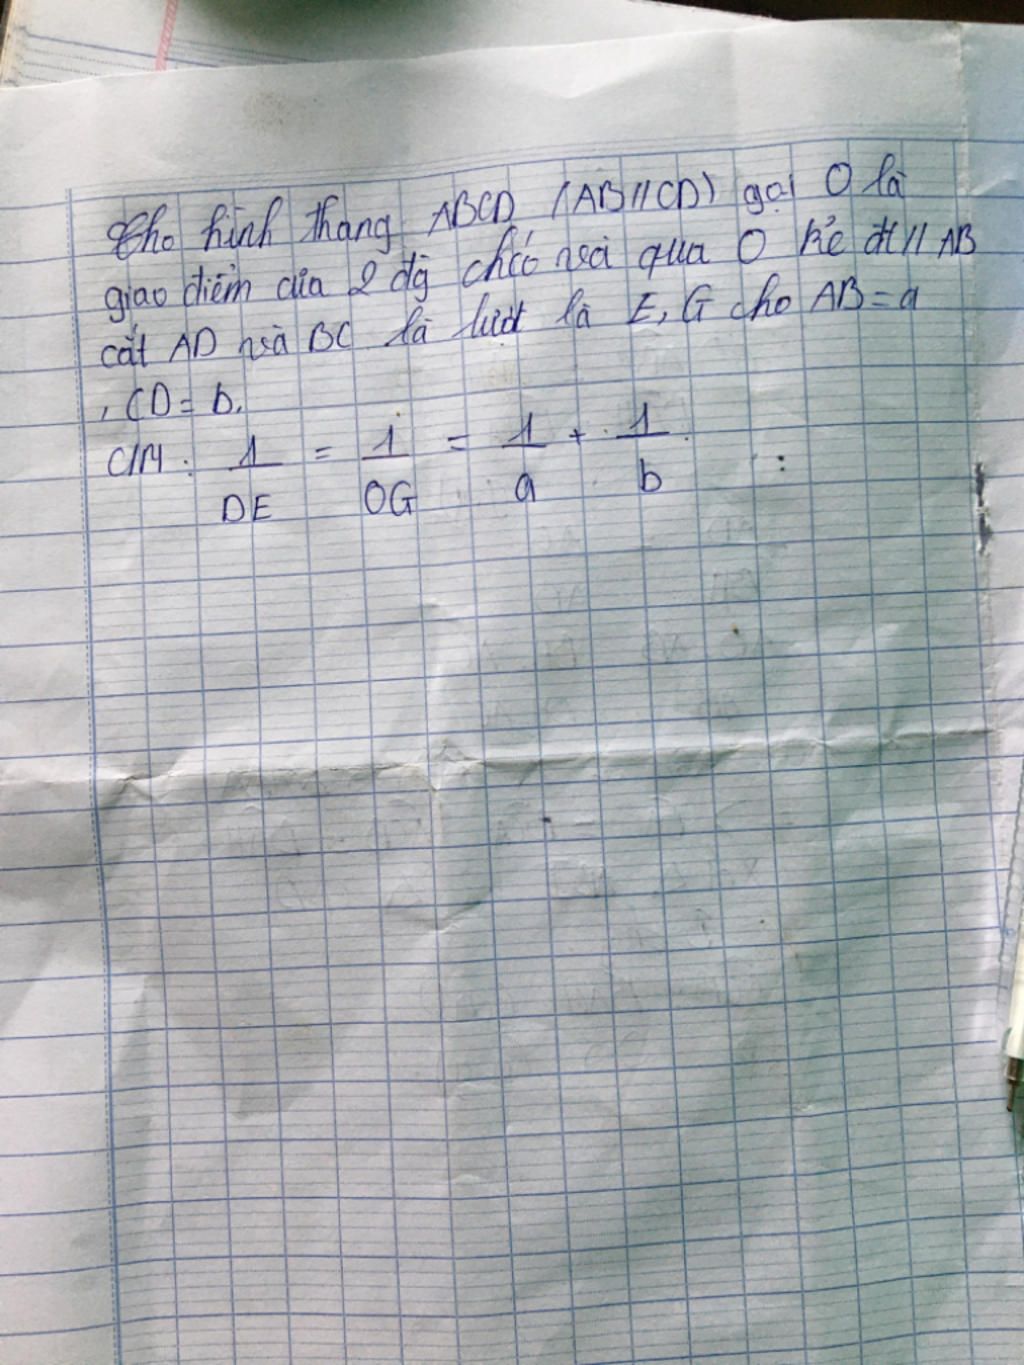 Cho hình thang ABCD (AB//CD) gọi O là
giao điểm của 2 đg chéo và qua O kẻ đt // AB
cắt AD và BC là lượt là E, G cho AB = a
, CD = b.
C/M : 1/DE = 1/OG = 1/a + 1/b :